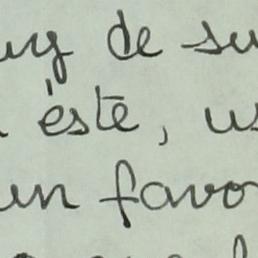 uy de su
éste, us
un favo